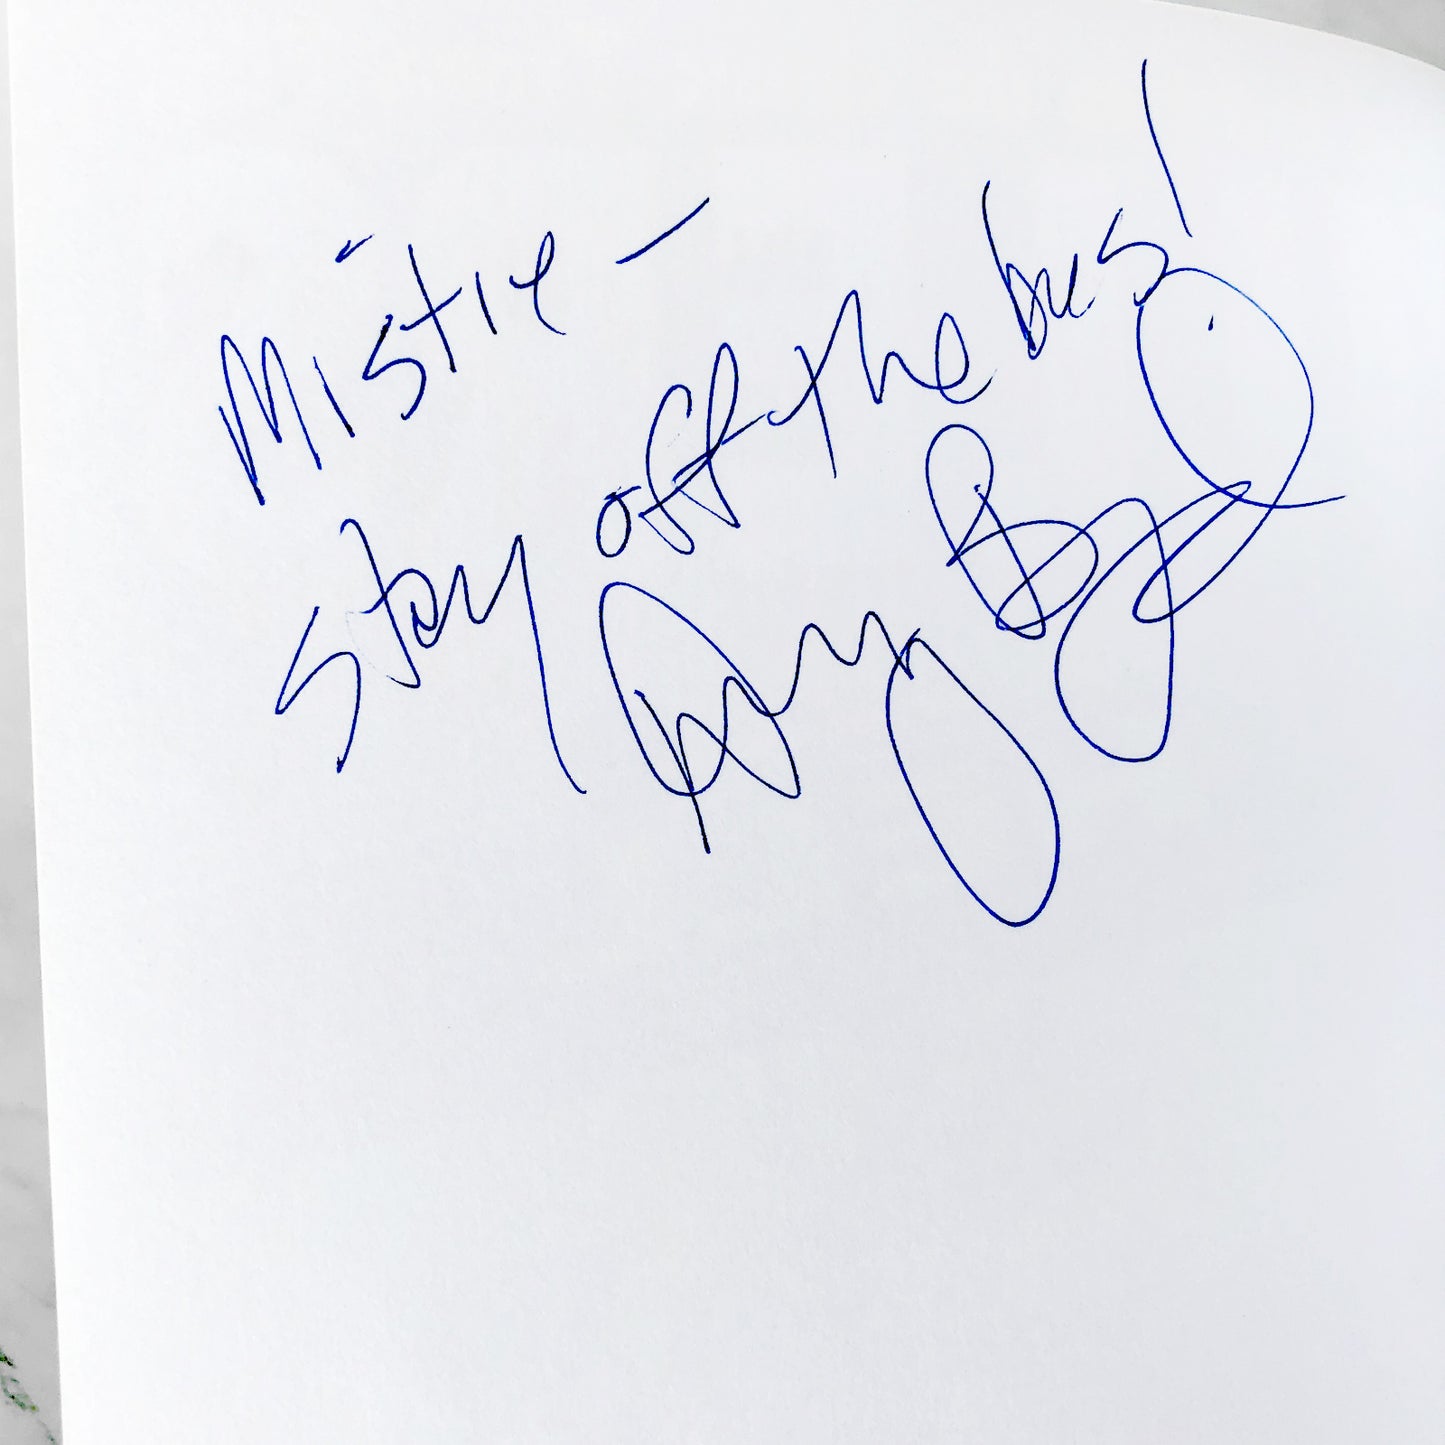 Mistie –
Stay off the bus!